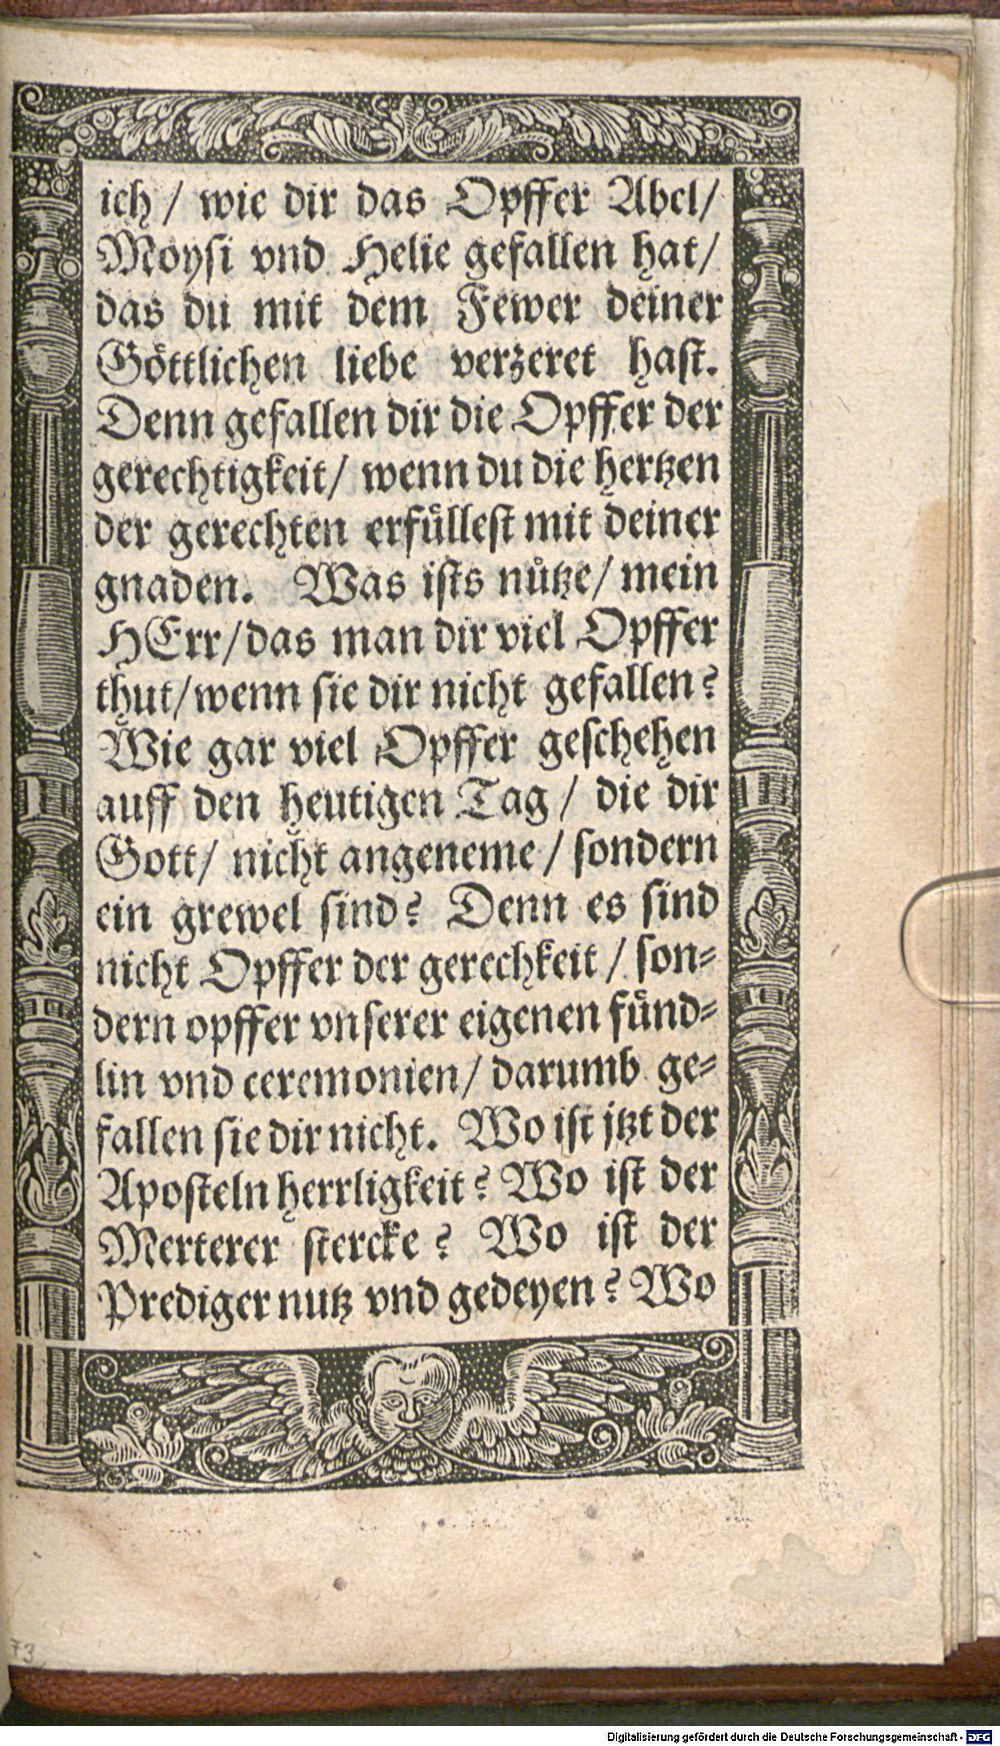 ich / wie dir das Opffer Abel/
Moysi vnd Helie gefallen hat/
das du mit dem Fewer deiner
Göttlichen liebe verzeret hast.
Denn gefallen dir die Opffer der
gerechtigkeit/ wenn du die hertzen
der gerechten erfüllest mit deiner
gnaden. Was ists nütze/ mein
HErr/das man dir viel Opffer
thut/wenn sie dir nicht gefallen?
Wie gar viel Opffer geschehen
auff den heutigen Tag / die dir
Gott/ nicht angeneme / sondern
ein grewel sind? Denn es sind
nicht Opffer der gerechkeit / son-
dern opffer vnserer eigenen fünd-
lin vnd ceremonien/ darumb ge-
fallen sie dir nicht. Wo ist jtzt der
Aposteln herrligkeit? Wo ist der
Merterer stercke? Wo ist der
Prediger nutz vnd gedeyen? Wo
73
Digitalisierung gefördert durch die Deutsche Forschungsgemeinschaft - DFG